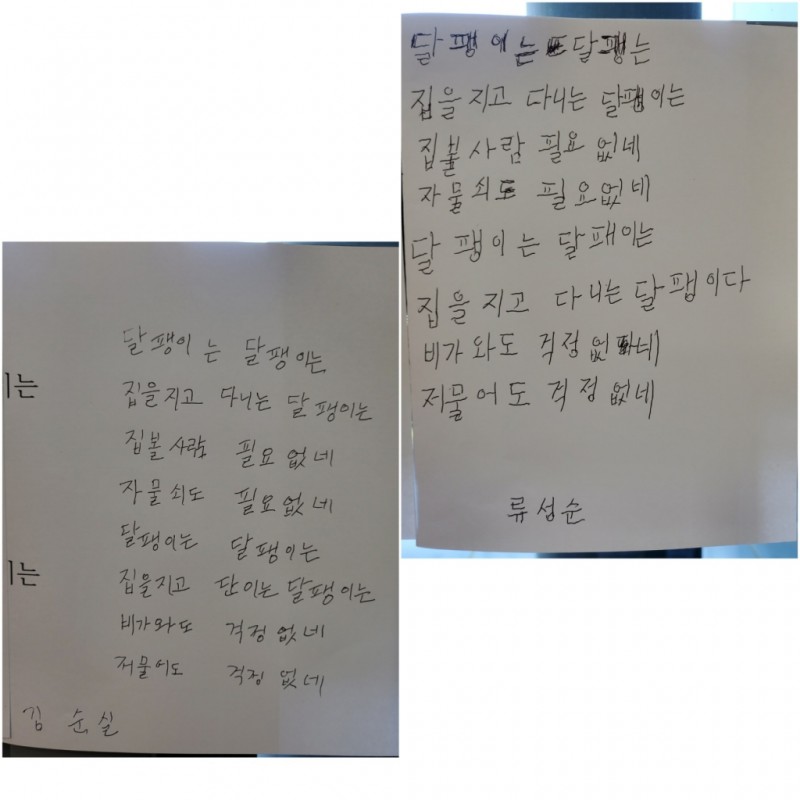 달팽이는 달팽이는
집을지고 다니는 달팽이는
집볼사람 필요없네
자물쇠도 필요없네
달팽이는 달팽이는
집을지고 단이는 달팽이는
비가와또 걱정없네
저물어도 걱정없네
김순실
이는
이는
달팽이는 달팽는
집을 지고 다니는 달팽이는
집볼사람 필요 없네
자물쇠도 필요없네
달팽이는 달패이는
집을 지고 다니는 달팽이다
비가와도 걱정없네
저물어도 걱정없네
류성순